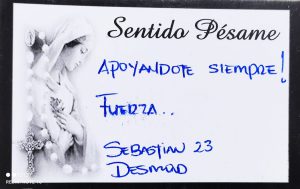 Sentido Pésame
APOYANDOTE SIEMPRE!
FUERZA..
SEBASTIAN 23
DESMOND